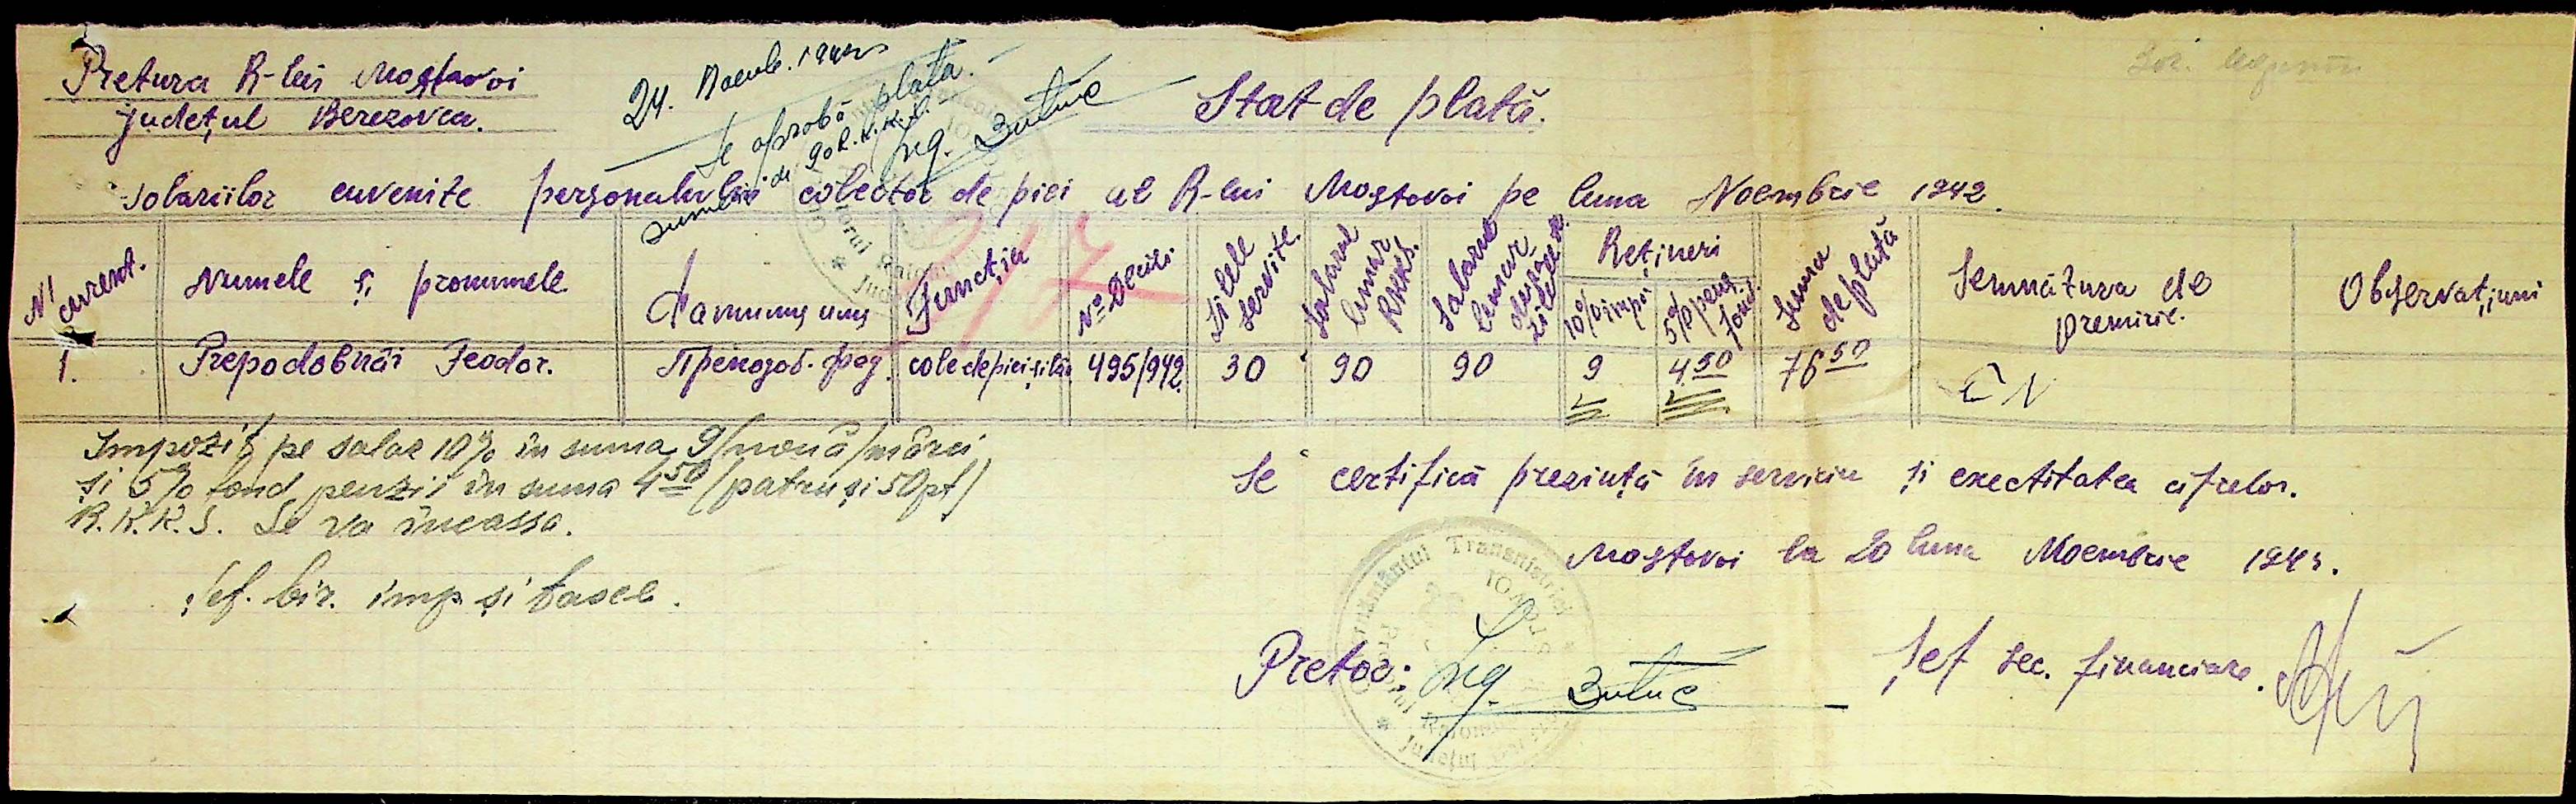 Pretura R-lui Mostovoi
județul Berezovca.
24. Noemb. 1942
Se aprobă plata
sumei de 90 R.K.K.S.
Ing. Butuc
Stat de plată.
solariilor cuvenite personalului colector de piei al R-lui Mostovoi pe luna Noembrie 1942.
217
N! curent.
Numele și pronumele
Функция
Funcția
No Deciz.
Zilele servite.
Salarul lunar RKKS.
Salarul lunar după zilele
Rețineri
10% impoz
5% pens. fond.
Suma de plată
Semnătura de primire.
Observațiuni
1. Prepodobnâi Feodor. Преподоб. фед. cole de piei și lână 495/942 30 90 90 9 4.50 76 50
Impozit pe salar 10% în suma 9/nouă/mărci
și 5% fond penzii în suma 4 50 /patru și 50 pf/
R.K.K.S. Se va încassa.
Șef. bir. imp și taxe.
Se certifică prezință în serviciu și exectitatea cifrelor.
Mostovoi la 20 luna Noembrie 1942.
Guvernământul Transnistriei
Pretor: Ing. Butuc
Șef sec. financiare.